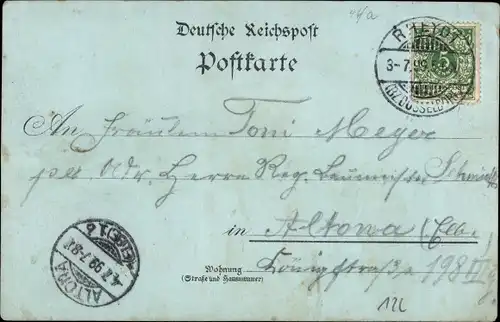 44a
Deutsche Reichspost
Postkarte
RHEYDT
3-7.99.
(BZ. DÜSSELDORF)
An Fräulein Toni Meyer
per Adr. Herrn Reg. Baumeister Schmidt
in Altona (Elbe.
Wohnung
(Straße und Hausnummer)
Königstraße 198 II
ALTONA
4.7.99.7-8V.
(ELBE) 1 b
12L